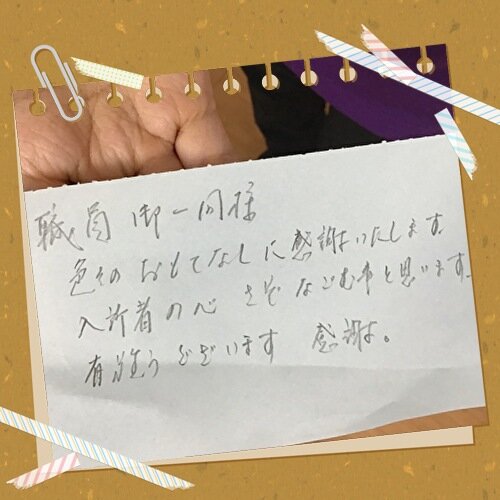 職員御一同様
色々のおもてなしに感謝いたします
入所者の心さぞなごむ事と思います。
有難うございます 感謝。